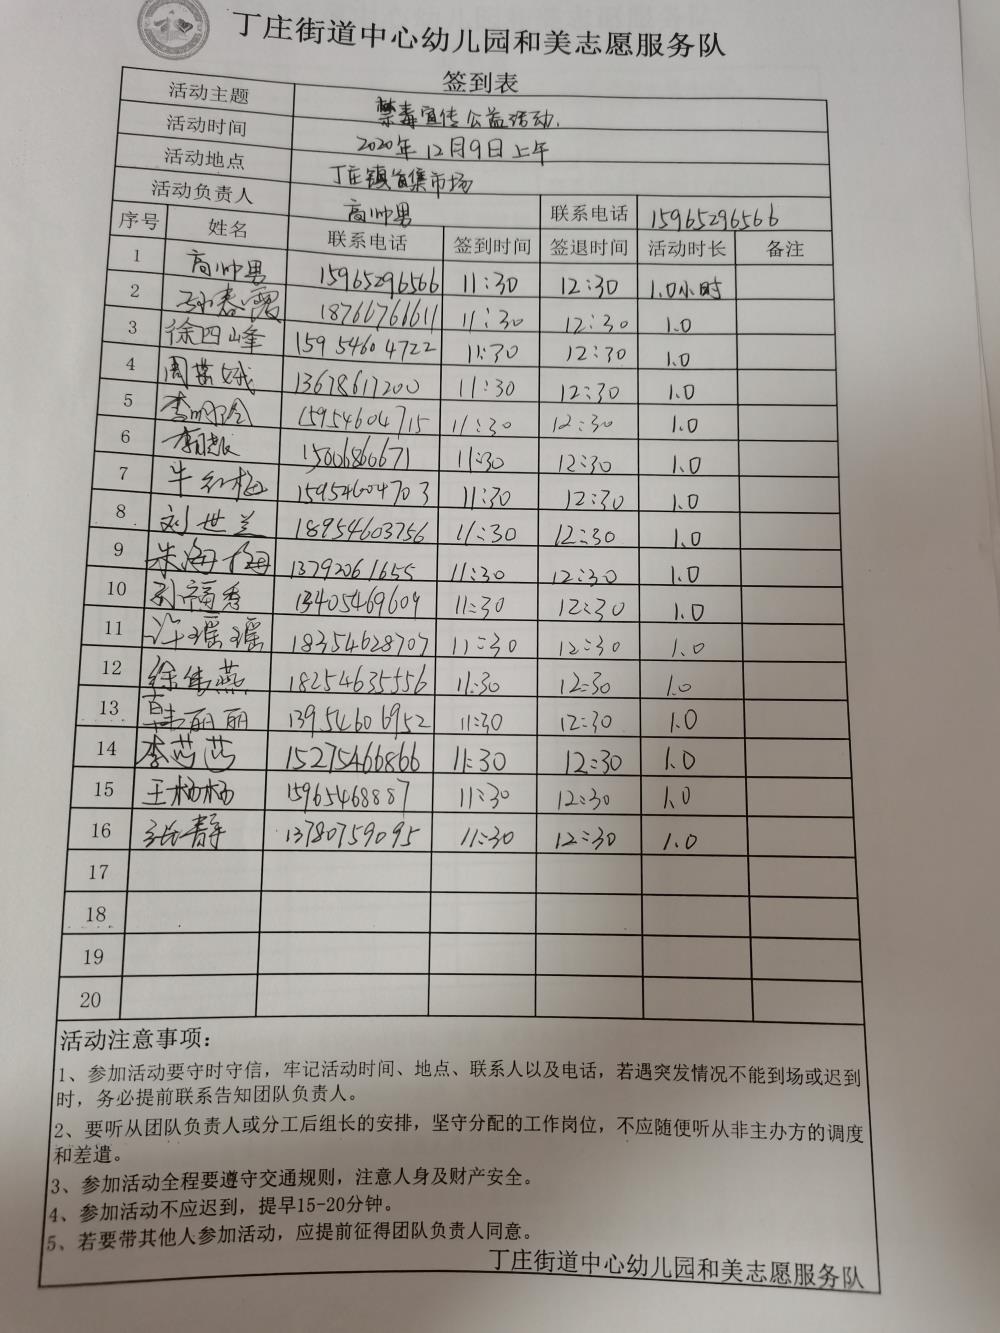 丁庄街道中心幼儿园和美志愿服务队
签到表
活动主题 禁毒宣传公益活动.
活动时间 2020年12月9日上午
活动地点 丁庄镇 集市场
活动负责人 高帅男 联系电话 15965296566
序号 姓名 联系电话 签到时间 签退时间 活动时长 备注
1 高帅男 15965296566 11:30 12:30 1.0小时
2 孙春霞 18766766611 11:30 12:30 1.0
3 徐四峰 15954604722 11:30 12:30 1.0
4 周 娥 13678617200 11:30 12:30 1.0
5 李明玲 15954604715 11:30 12:30 1.0
6 15006866671 11:30 12:30 1.0
7 牛红梅 15954604703 11:30 12:30 1.0
8 刘世兰 18954603756 11:30 12:30 1.0
9 朱海梅 13792061655 11:30 12:30 1.0
10 孙福秀 13405469609 11:30 12:30 1.0
11 许瑶瑶 18354628707 11:30 12:30 1.0
12 徐隽燕 18254635556 11:30 12:30 1.0
13 韩丽丽 13954606952 11:30 12:30 1.0
14 李芸芸 15275466866 11:30 12:30 1.0
15 王杨杨 15965468887 11:30 12:30 1.0
16 张静 13780759095 11:30 12:30 1.0
17
18
19
20
活动注意事项：
1、参加活动要守时守信，牢记活动时间、地点、联系人以及电话，若遇突发情况不能到场或迟到
时，务必提前联系告知团队负责人。
2、要听从团队负责人或分工后组长的安排，坚守分配的工作岗位，不应随便听从非主办方的调度
和差遣。
3、参加活动全程要遵守交通规则，注意人身及财产安全。
4、参加活动不应迟到，提早15-20分钟。
5、若要带其他人参加活动，应提前征得团队负责人同意。
丁庄街道中心幼儿园和美志愿服务队